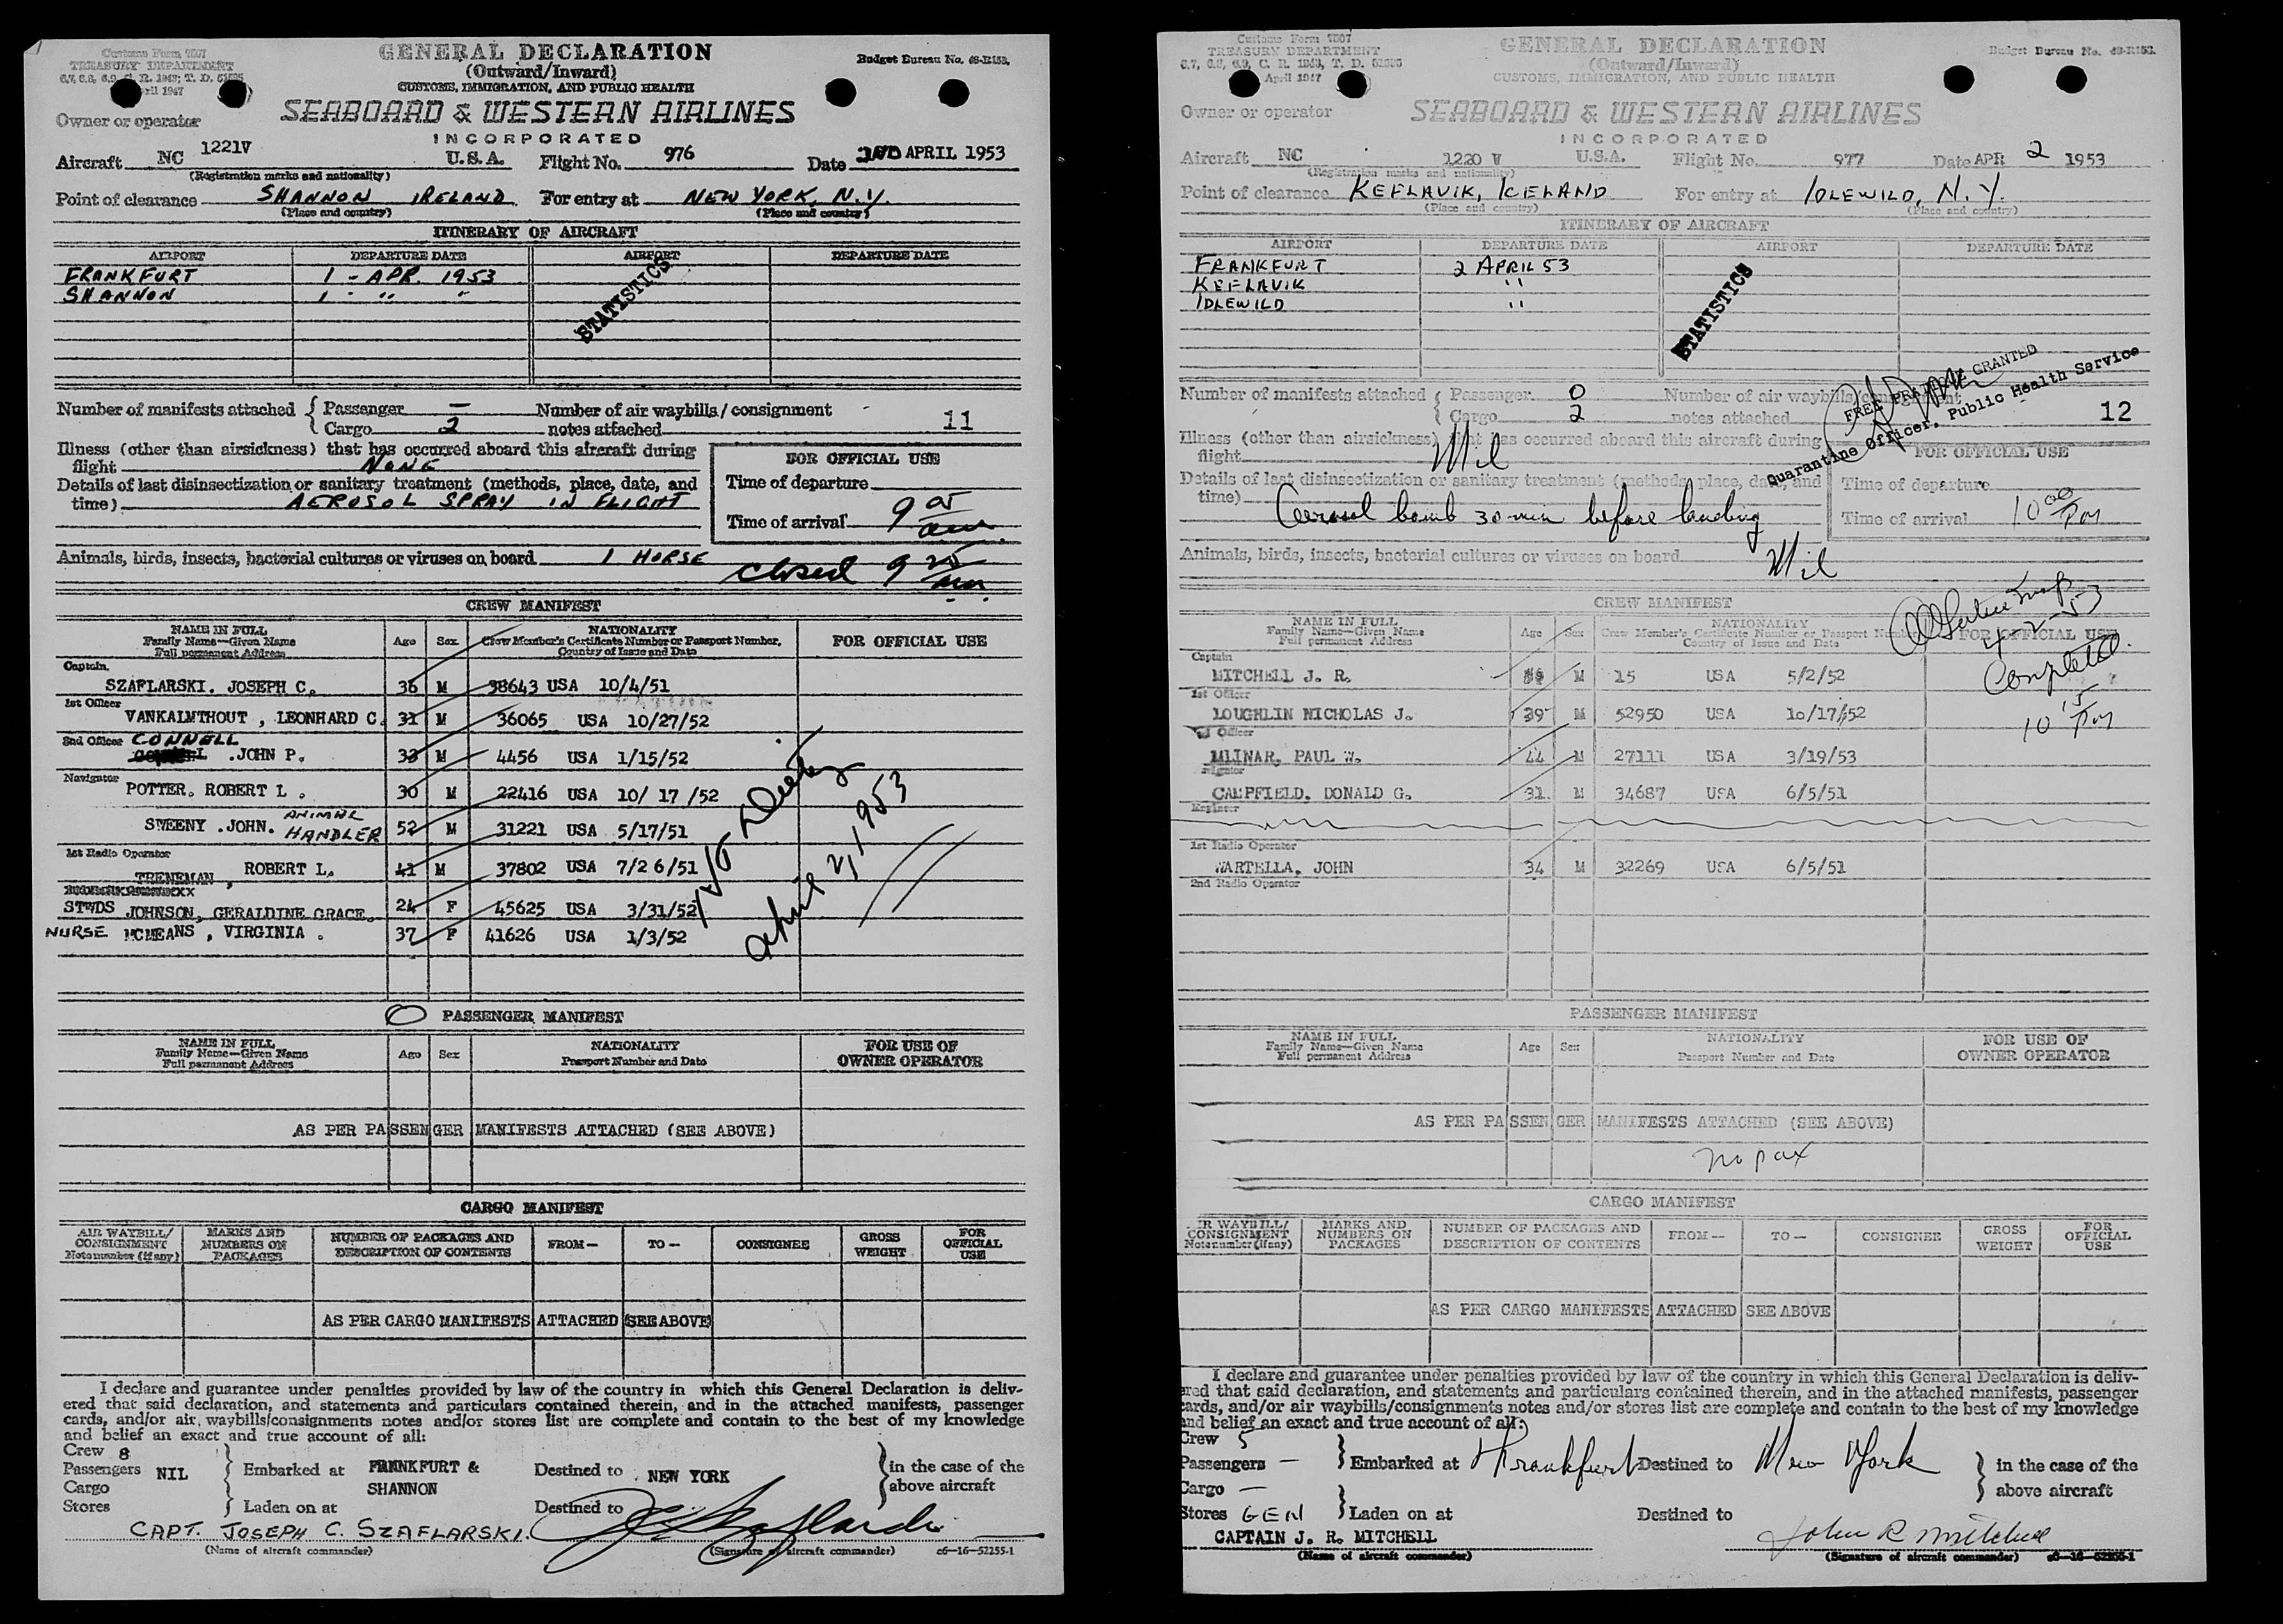 Customs Form 7507
TREASURY DEPARTMENT
6.7, 6.8, 6.9, C. R. 1943; T. D. 51595
April 1947
GENERAL DECLARATION
(Outward/Inward)
CUSTOMS, IMMIGRATION, AND PUBLIC HEALTH
Budget Bureau No. 48-R153.
Owner or operator
SEABOARD & WESTERN AIRLINES
INCORPORATED
Aircraft NC 1221V U.S.A. Flight No. 976 Date 2ND APRIL 1953
(Registration marks and nationality)
Point of clearance SHANNON IRELAND For entry at NEW YORK, N.Y.
(Place and country) (Place and country)
ITINERARY OF AIRCRAFT
AIRPORT DEPARTURE DATE AIRPORT DEPARTURE DATE
FRANKFURT 1 - APR. 1953
SHANNON 1 - " "
STATISTICS
Number of manifests attached { Passenger — Number of air waybills/consignment - 11
Cargo 2 notes attached
Illness (other than airsickness) that has occurred aboard this aircraft during
flight NONE
Details of last disinsectization or sanitary treatment (methods, place, date, and
time) AEROSOL SPRAY IN FLIGHT
FOR OFFICIAL USE
Time of departure
Time of arrival 9 05 am
Animals, birds, insects, bacterial cultures or viruses on board 1 HORSE
closed 9 25 am
CREW MANIFEST
NAME IN FULL
Family Name—Given Name
Full permanent Address
Age Sex
NATIONALITY
Crew Member's Certificate Number or Passport Number,
Country of Issue and Date
FOR OFFICIAL USE
Captain
SZAFLARSKI. JOSEPH C. 36 M 38643 USA 10/4/51
1st Officer
VANKALMTHOUT , LEONHARD C. 31 M 36065 USA 10/27/52
2nd Officer CONNELL
.JOHN P. 33 M 4456 USA 1/15/52
Navigator
POTTER. ROBERT L . 30 M 22416 USA 10/ 17 /52
SWEENY .JOHN. ANIMAL HANDLER 52 M 31221 USA 5/17/51
1st Radio Operator
TRENEMAN , ROBERT L. 41 M 37802 USA 7/2 6/51
STWDS JOHNSON, GERALDINE GRACE. 24 F 45625 USA 3/31/52
NURSE MCMEANS , VIRGINIA . 37 F 41626 USA 1/3/52
april 2, 1953
0 PASSENGER MANIFEST
NAME IN FULL
Family Name—Given Name
Full permanent Address
Age Sex
NATIONALITY
Passport Number and Date
FOR USE OF
OWNER OPERATOR
AS PER PASSENGER MANIFESTS ATTACHED (SEE ABOVE)
CARGO MANIFEST
AIR WAYBILL/
CONSIGNMENT
Note number (if any)
MARKS AND
NUMBERS ON
PACKAGES
NUMBER OF PACKAGES AND
DESCRIPTION OF CONTENTS
FROM— TO— CONSIGNEE
GROSS
WEIGHT
FOR
OFFICIAL
USE
AS PER CARGO MANIFESTS ATTACHED (SEE ABOVE)
I declare and guarantee under penalties provided by law of the country in which this General Declaration is deliv-
ered that said declaration, and statements and particulars contained therein, and in the attached manifests, passenger
cards, and/or air, waybills/consignments notes and/or stores list are complete and contain to the best of my knowledge
and belief an exact and true account of all:
Crew 8
Passengers NIL Embarked at FRNNKFURT & Destined to NEW YORK in the case of the
Cargo SHANNON above aircraft
Stores Laden on at Destined to
CAPT. JOSEPH C. SZAFLARSKI. J C Szaflarski
(Name of aircraft commander) (Signature of aircraft commander) c6—16—52255-1
Customs Form 7507
TREASURY DEPARTMENT
6.7, 6.8, 6.9, C. R. 1943, T. D. 51595
April 1947
GENERAL DECLARATION
(Outward/Inward)
CUSTOMS, IMMIGRATION, AND PUBLIC HEALTH
Budget Bureau No. 48-R153.
Owner or operator
SEABOARD & WESTERN AIRLINES
INCORPORATED
Aircraft NC 1220 V U.S.A. Flight No. 977 Date APR 2 1953
(Registration marks and nationality)
Point of clearance KEFLAVIK, ICELAND For entry at IDLEWILD, N.Y.
(Place and country) (Place and country)
ITINERARY OF AIRCRAFT
AIRPORT DEPARTURE DATE AIRPORT DEPARTURE DATE
FRANKFURT 2 APRIL 53
KEFLAVIK "
IDLEWILD "
STATISTICS
FREE PRATIQUE GRANTED
Quarantine Officer, Public Health Service
Number of manifests attached { Passenger 0 Number of air waybills/consignment 12
Cargo 2 notes attached
Illness (other than airsickness) that has occurred aboard this aircraft during
flight Nil
Details of last disinsectization or sanitary treatment (methods, place, date, and
time) Aerosol bomb 30 min before landing
FOR OFFICIAL USE
Time of departure
Time of arrival 10 00 pm
Animals, birds, insects, bacterial cultures or viruses on board Nil
4-2-53
Completed
10 15 pm
CREW MANIFEST
NAME IN FULL
Family Name—Given Name
Full permanent Address
Age Sex
NATIONALITY
Crew Member's Certificate Number or Passport Number
Country of Issue and Date
FOR OFFICIAL USE
Captain
MITCHELL J. R. M 15 USA 5/2/52
1st Officer
LOUGHLIN NICHOLAS J. 39 M 52950 USA 10/17/52
2nd Officer
MLINAR, PAUL W. 44 M 27111 USA 3/19/53
Navigator
CAMPFIELD, DONALD G. 31 M 34687 USA 6/5/51
Engineer
1st Radio Operator
WARTELLA, JOHN 34 M 32269 USA 6/5/51
2nd Radio Operator
PASSENGER MANIFEST
NAME IN FULL
Family Name—Given Name
Full permanent Address
Age Sex
NATIONALITY
Passport Number and Date
FOR USE OF
OWNER OPERATOR
AS PER PASSENGER MANIFESTS ATTACHED (SEE ABOVE)
no pax
CARGO MANIFEST
AIR WAYBILL/
CONSIGNMENT
Note number (if any)
MARKS AND
NUMBERS ON
PACKAGES
NUMBER OF PACKAGES AND
DESCRIPTION OF CONTENTS
FROM— TO— CONSIGNEE
GROSS
WEIGHT
FOR
OFFICIAL
USE
AS PER CARGO MANIFESTS ATTACHED SEE ABOVE
I declare and guarantee under penalties provided by law of the country in which this General Declaration is deliv-
ered that said declaration, and statements and particulars contained therein, and in the attached manifests, passenger
cards, and/or air waybills/consignments notes and/or stores list are complete and contain to the best of my knowledge
and belief an exact and true account of all:
Crew 5
Passengers — Embarked at Frankfurt Destined to New York in the case of the
Cargo — above aircraft
Stores GEN Laden on at Destined to
CAPTAIN J. R. MITCHELL John R Mitchell
(Name of aircraft commander) (Signature of aircraft commander) c6—16—52255-1